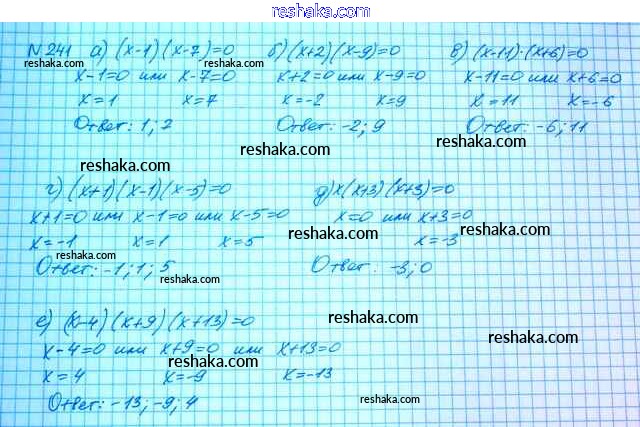 reshaka.com
N 241 а) (x-1)(x-7)=0 б) (x+2)(x-9)=0 в) (x-11)·(x+6)=0
reshaka.com reshaka.com reshaka.com
x-1=0 или x-7=0 x+2=0 или x-9=0 x-11=0 или x+6=0
x=1 x=7 x=-2 x=9 x=11 x=-6
Ответ: 1; 7 Ответ: -2; 9 Ответ: -6; 11
reshaka.com reshaka.com reshaka.com
г) (x+1)(x-1)(x-5)=0 д) x(x+3)(x+3)=0
x+1=0 или x-1=0 или x-5=0 x=0 или x+3=0
reshaka.com reshaka.com
x=-1 x=1 x=5 x=-3
reshaka.com
Ответ: -1; 1; 5 Ответ: -3; 0
reshaka.com reshaka.com
е) (x-4)(x+9)(x+13)=0
reshaka.com reshaka.com
x-4=0 или x+9=0 или x+13=0
reshaka.com
x=4 x=-9 x=-13
Ответ: -13; -9; 4
reshaka.com
reshaka.com